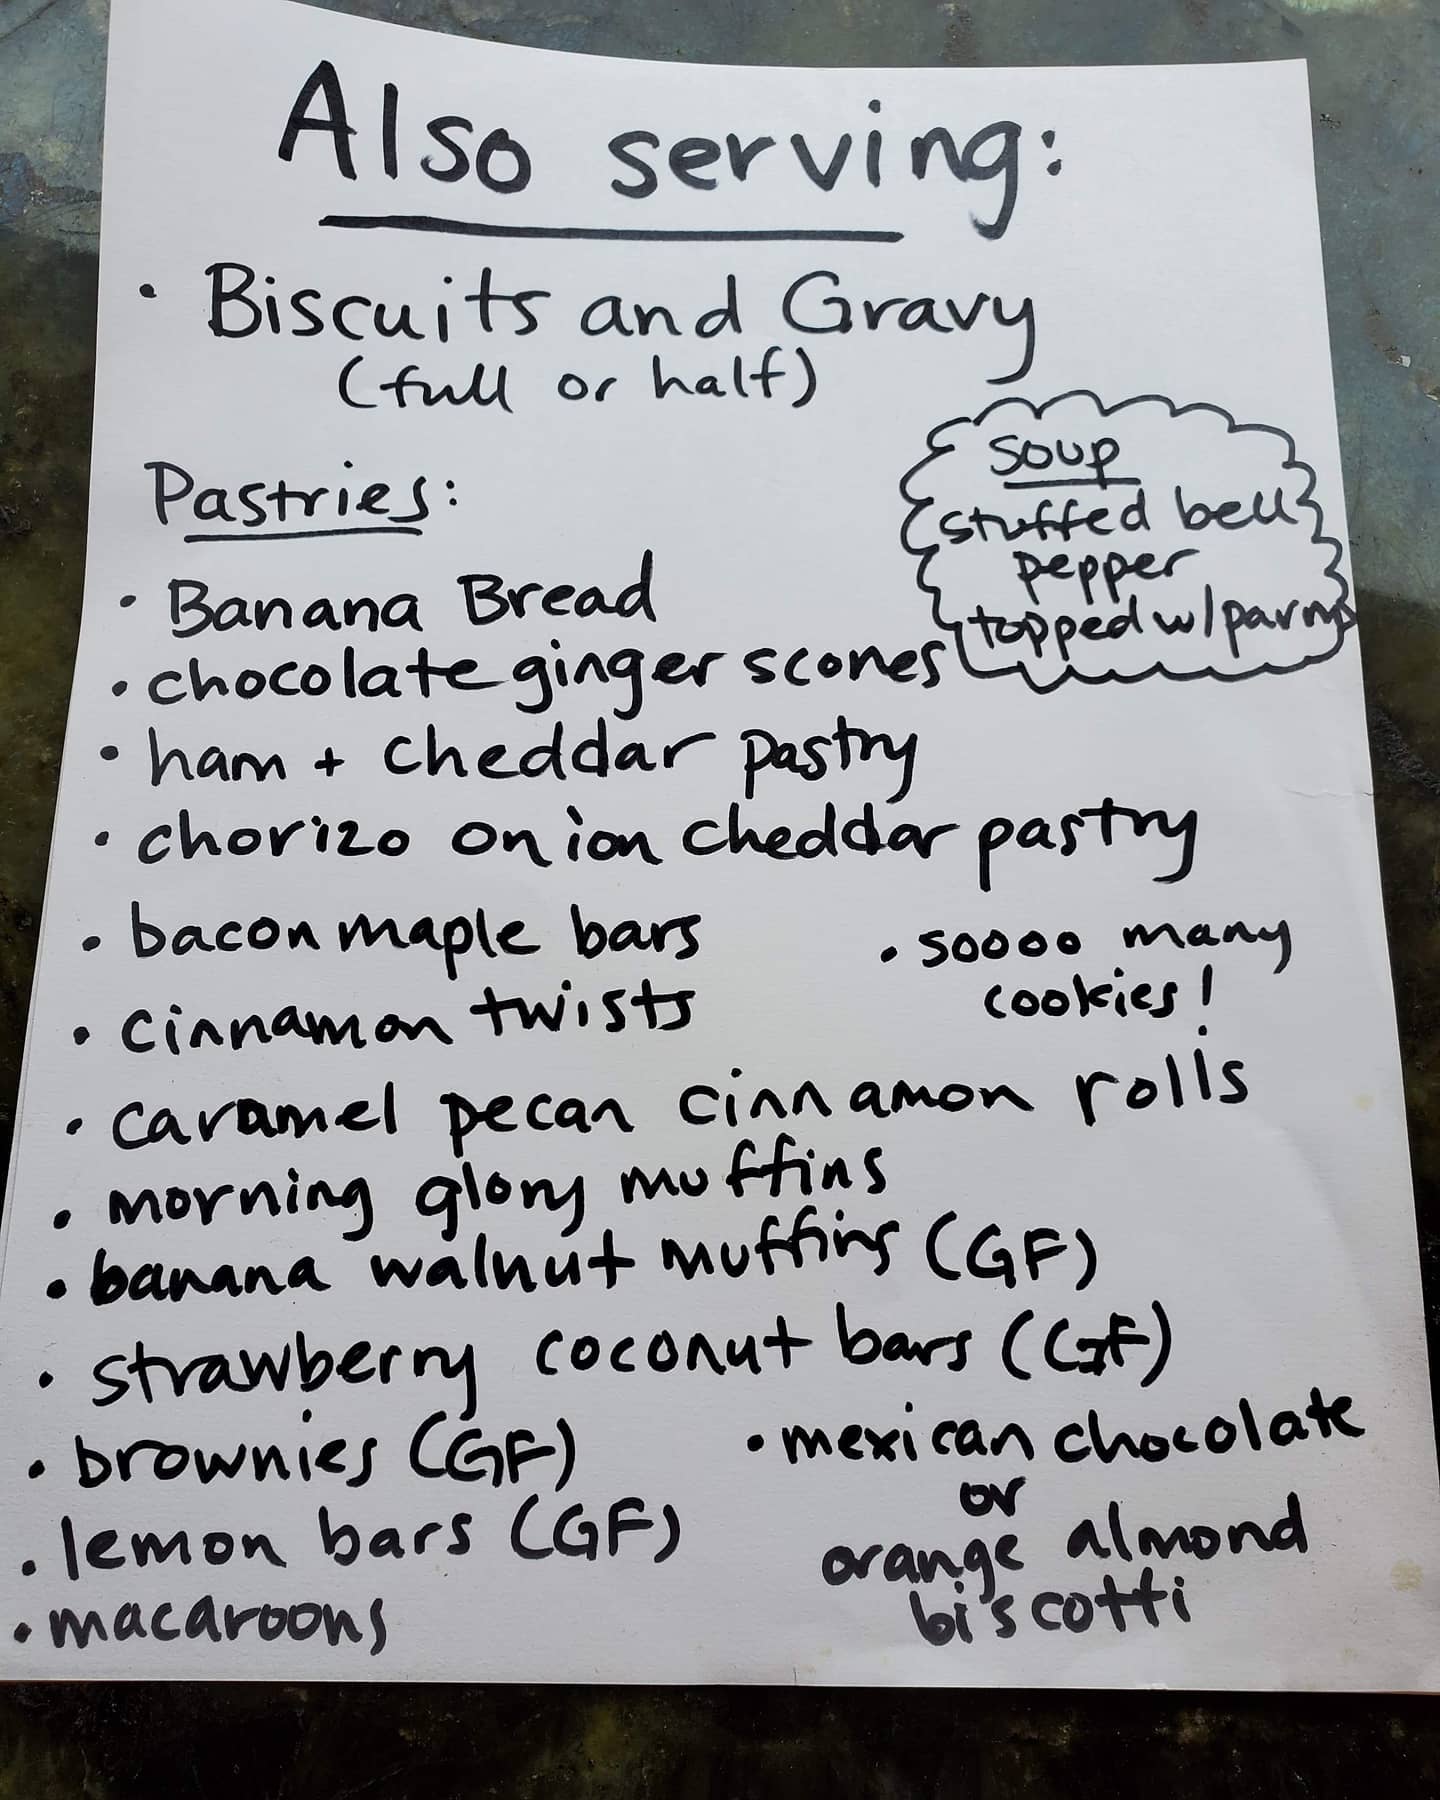 Also serving:
• Biscuits and Gravy
(full or half)
soup
stuffed bell
pepper
topped w/parm
Pastries:
• Banana Bread
• chocolate ginger scones
• ham + cheddar pastry
• chorizo onion cheddar pastry
• bacon maple bars
• soooo many
cookies!
• cinnamon twists
• caramel pecan cinnamon rolls
• morning glory muffins
• banana walnut muffins (GF)
• strawberry coconut bars (GF)
• brownies (GF)
• lemon bars (GF)
• macaroons
• mexican chocolate
or
orange almond
biscotti